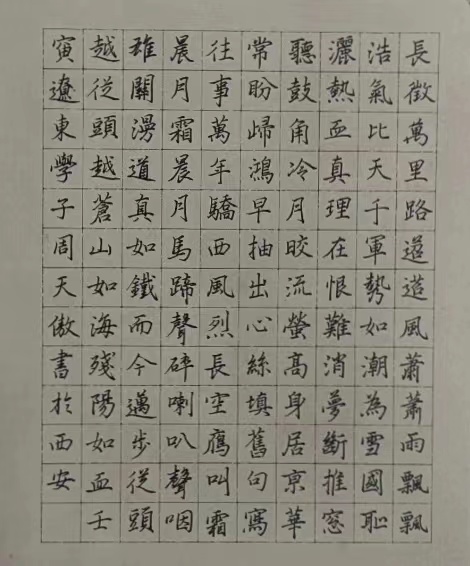 長徵萬里路遥迢風蕭蕭雨飄飄
浩氣比天千軍勢如潮為雪國恥
灑熱血真理在恨難消夢斷推窓
聽鼓角冷月皎流螢高身居京華
常盼歸鴻早抽出心絲填舊句寫
往事萬年驕西風烈長空鴈叫霜
晨月霜晨月馬蹄聲碎喇叭聲咽
雄關漫道真如鐵而今邁步從頭
越從頭越蒼山如海殘陽如血壬
寅遼東學子周天傲書於西安